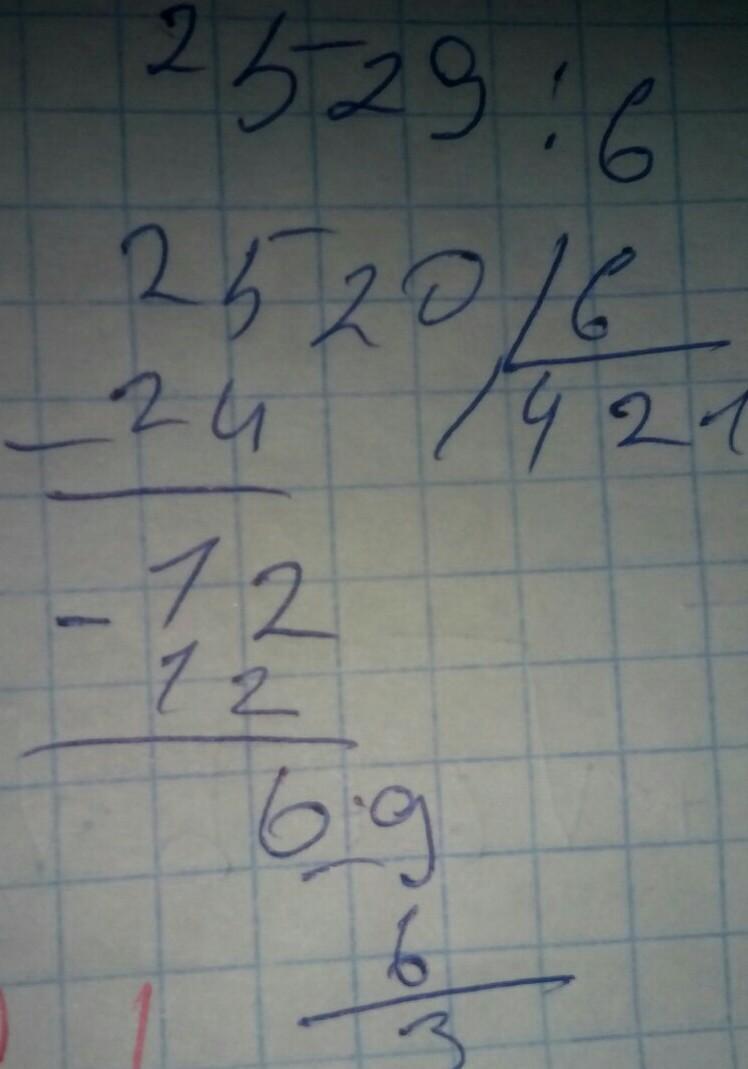 2529 : 6
2520 6
- 24 421
12
- 12
0 9
- 6
3
1